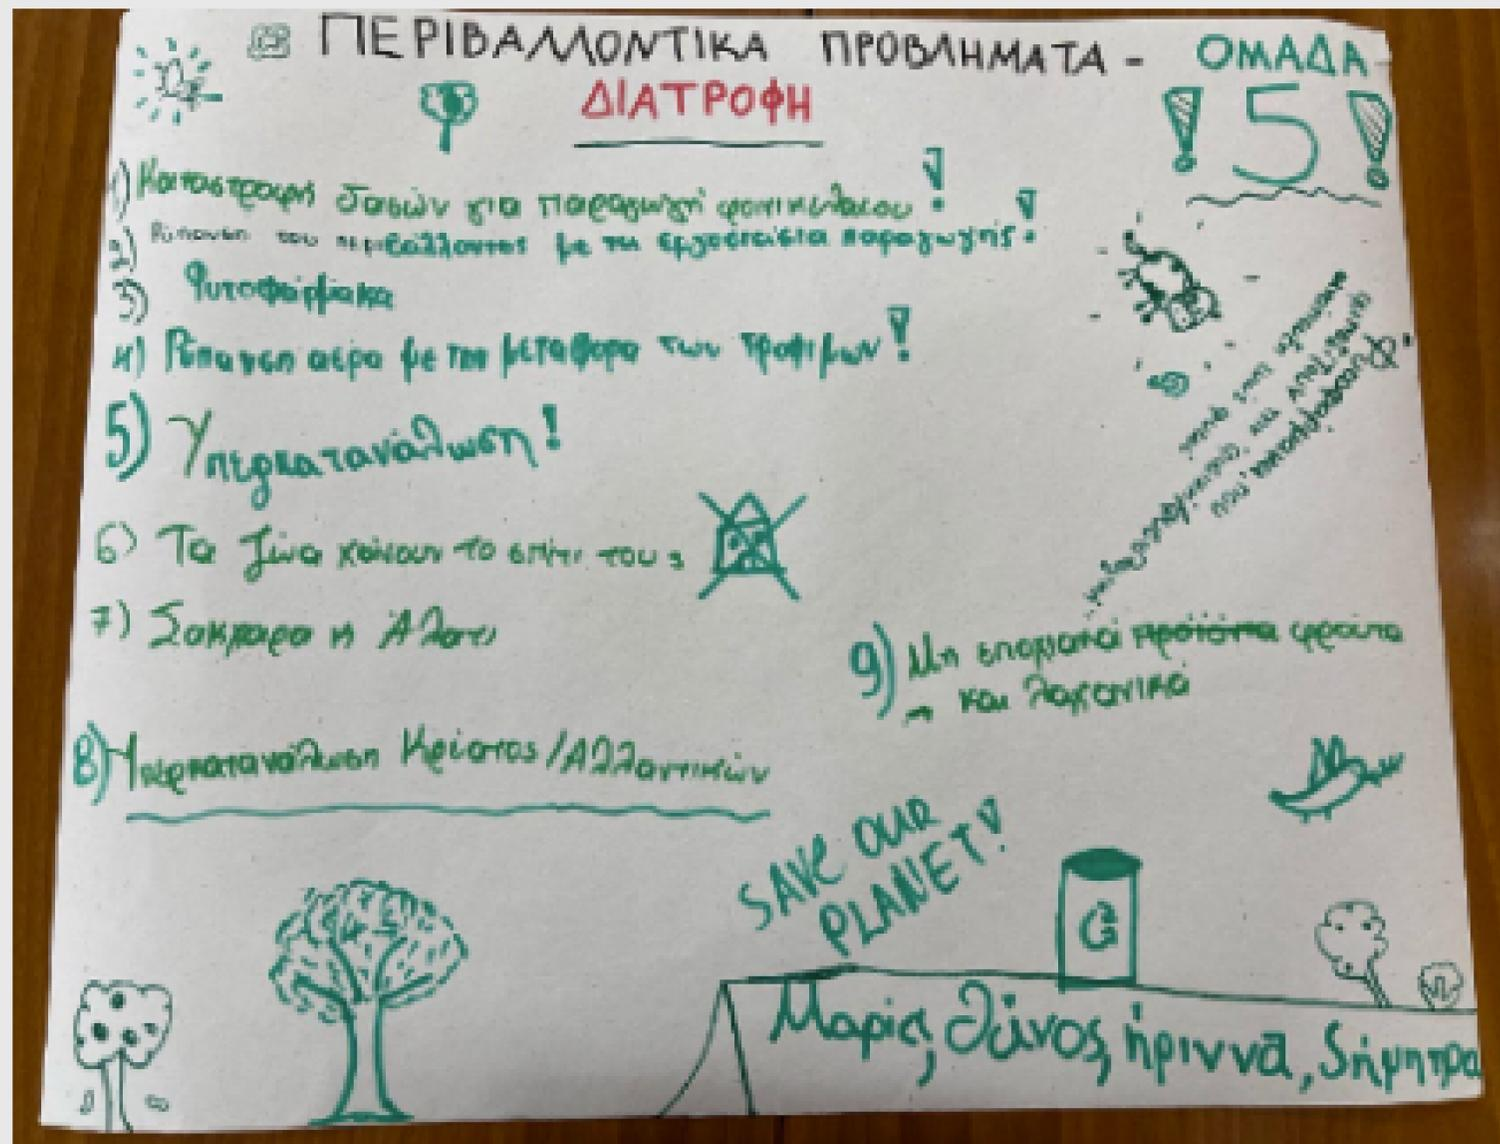 ΠΕΡΙΒΑΛΛΟΝΤΙΚΑ ΠΡΟΒΛΗΜΑΤΑ - ΟΜΑΔΑ
ΔΙΑΤΡΟΦΗ
! 5 !
1) Καταστροφή δασών για παραγωγή φοινικέλαιου!
2) Ρύπανση του περιβάλλοντος με τα εργοστάσια παραγωγής!
3) Φυτοφάρμακα
4) Ρύπανση αέρα με την μεταφορα των τροφιμων!
5) Υπερκατανάλωση!
6) Τα ζώα χάνουν το σπίτι τους
7) Ζακχαρο κ Άλατι
8) Υπερκατανάλωση Κρέατος/Αλλαντικών
9) Μη εποχιακά προϊόντα φρούτα
→ και λαχανικά
Φυτοφάρμακα, που
SAVE OUR
PLANET!
Μαρία, Θάνος, ήριννα, δήμητρα